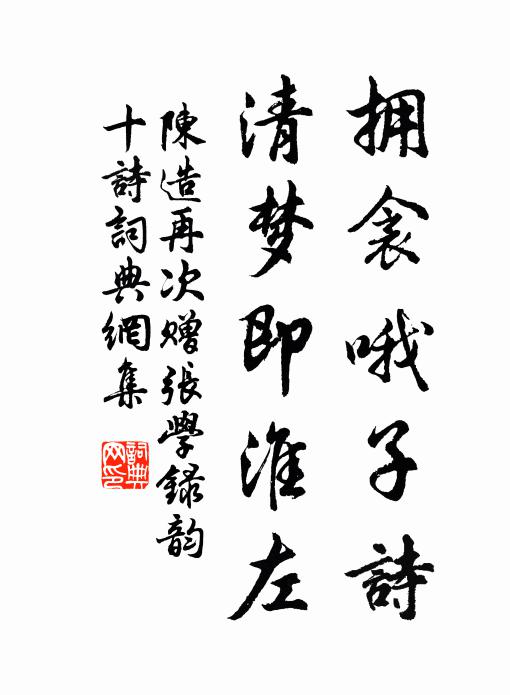 拥衾哦子詩
清梦即淮左
陳造再次赠張學録韵
十詩詞典網集
詞典網印